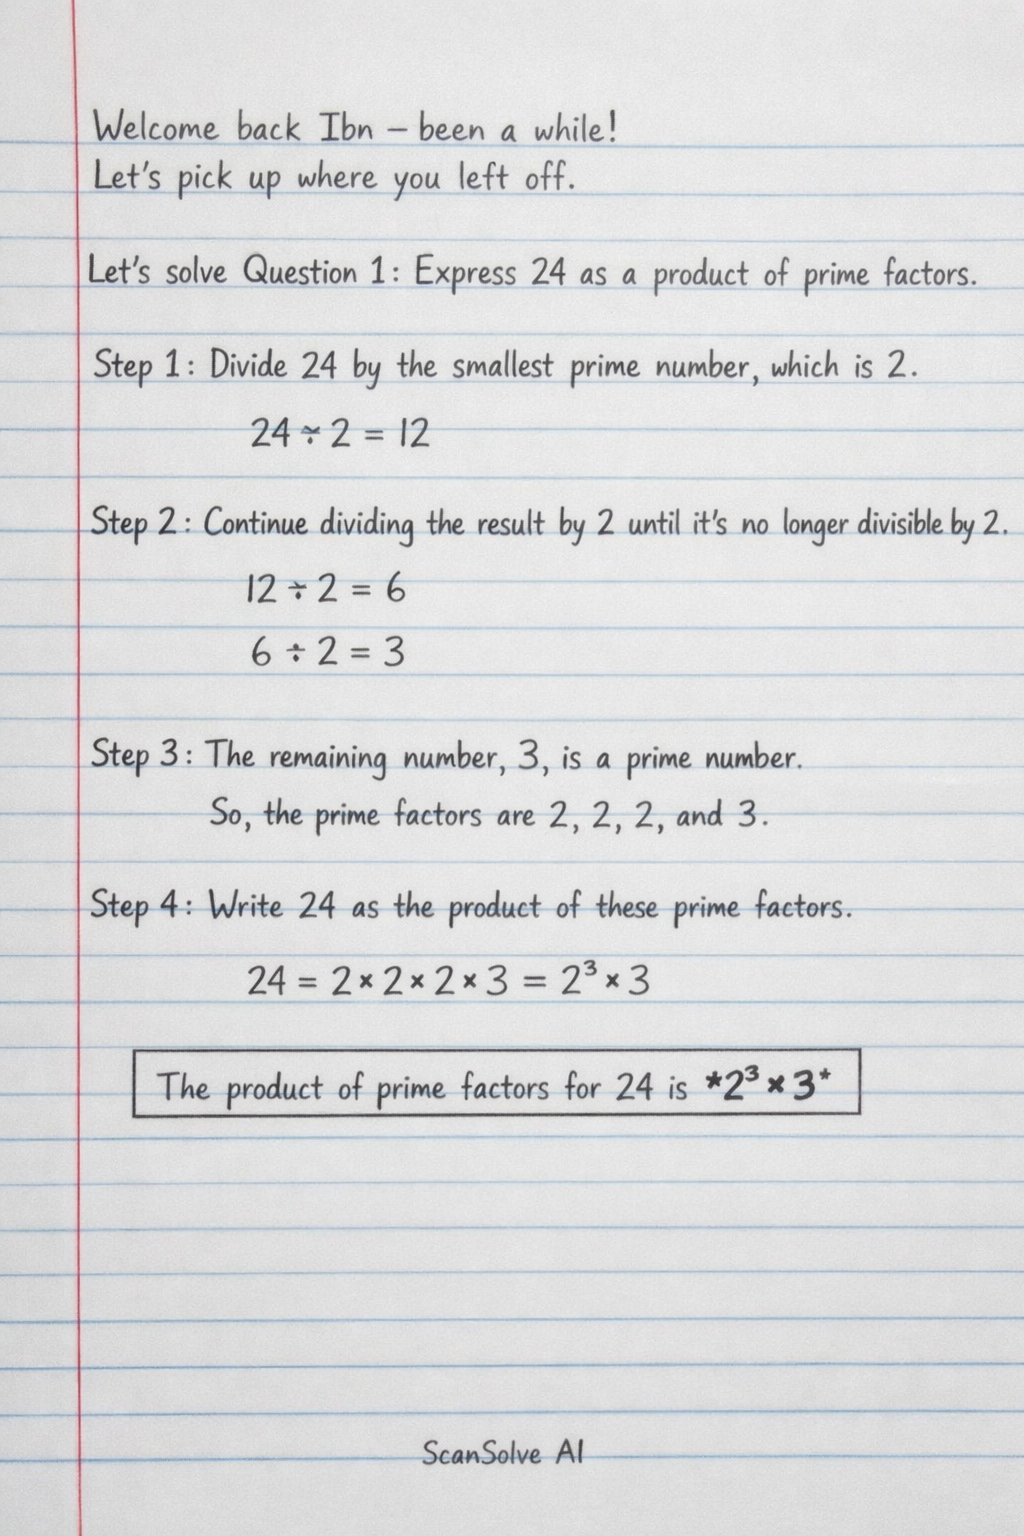 Welcome back Ibn – been a while!
Let's pick up where you left off.
Let's solve Question 1: Express 24 as a product of prime factors.
Step 1: Divide 24 by the smallest prime number, which is 2.
24 ÷ 2 = 12
Step 2: Continue dividing the result by 2 until it's no longer divisible by 2.
12 ÷ 2 = 6
6 ÷ 2 = 3
Step 3: The remaining number, 3, is a prime number.
So, the prime factors are 2, 2, 2, and 3.
Step 4: Write 24 as the product of these prime factors.
24 = 2 × 2 × 2 × 3 = 2³ × 3
The product of prime factors for 24 is *2³ × 3*
ScanSolve AI